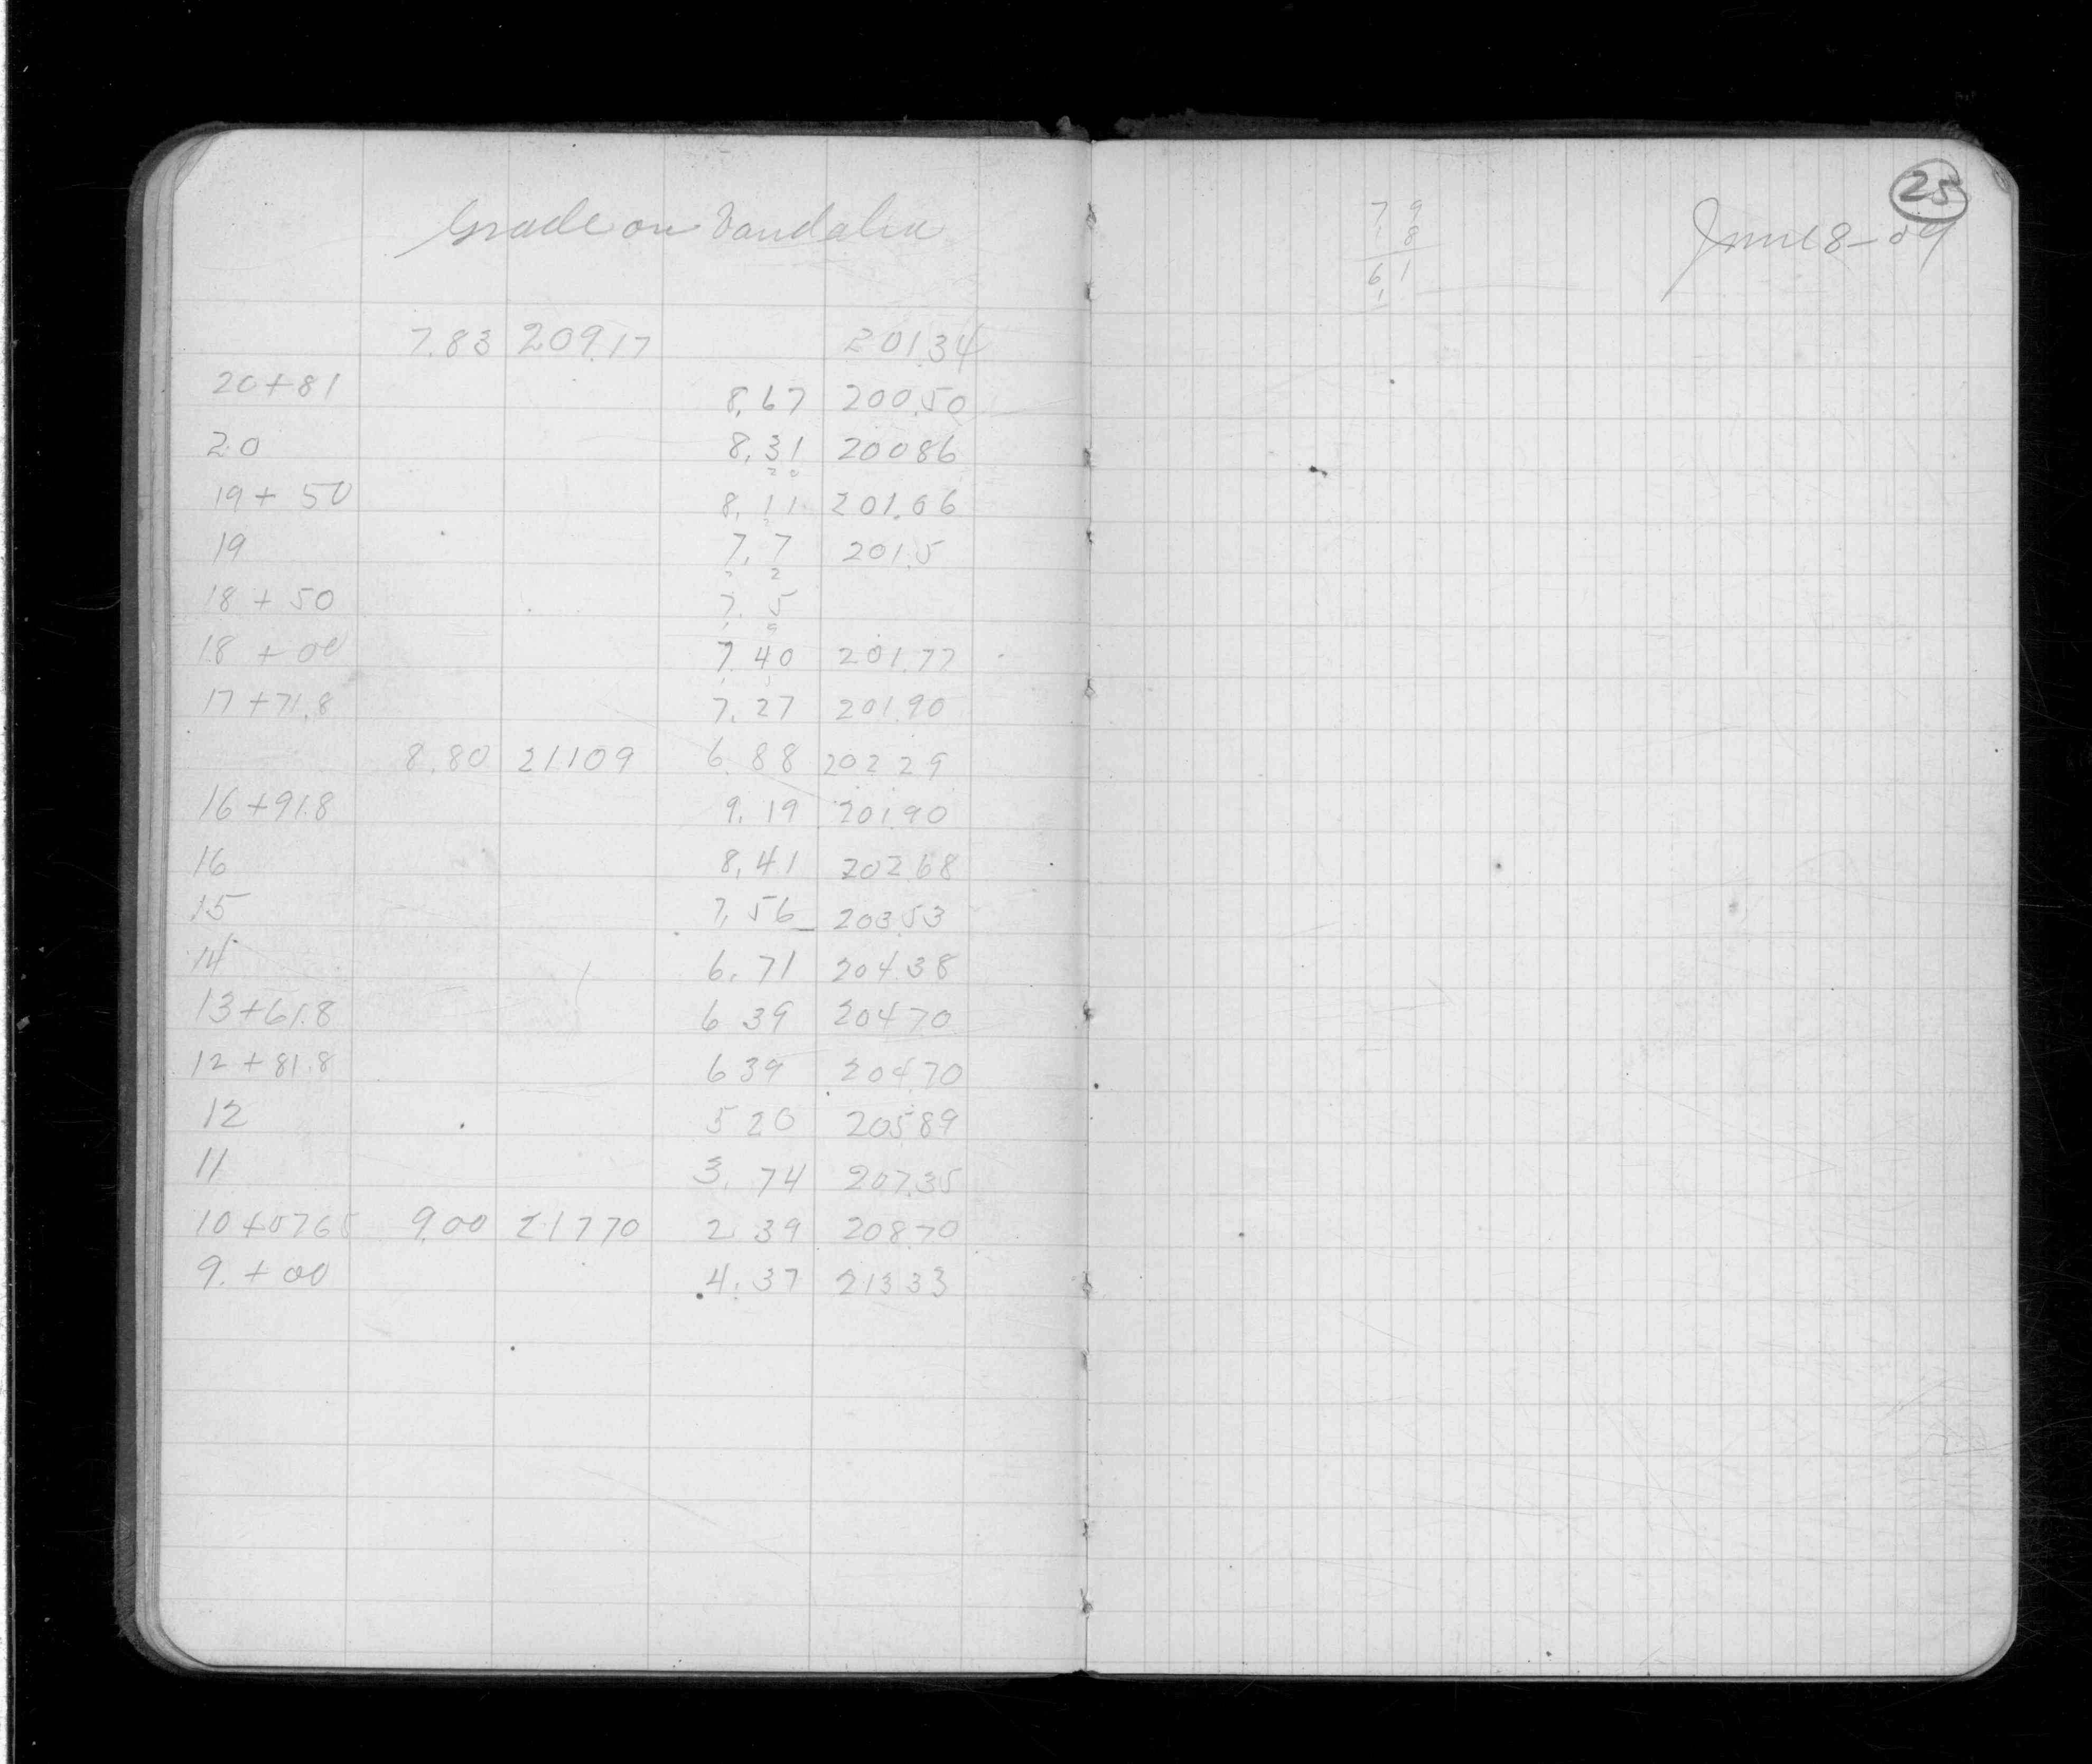 Grade on Vandalia
7.83 209.17 201.34
20+81 8.67 200.50
20 8.31 20086
2 0
19+50 8.11 201.06
19 7.7 201.5
2
18+50 7.5
18+00 7.40 201.77
17+71.8 7.27 201.90
8.80 21109 6 88 202 29
16+91.8 9.19 20190
16 8.41 202 68
15 7.56 203 53
14 6.71 204.38
13+61.8 6 39 20470
12+81.8 6 39 20470
12 5 20 20589
11 3.74 207.35
10+0765 9.00 21770 2 39 20870
9.+00 4.37 21333
25
June 8-09
7 9
8
6 1
1